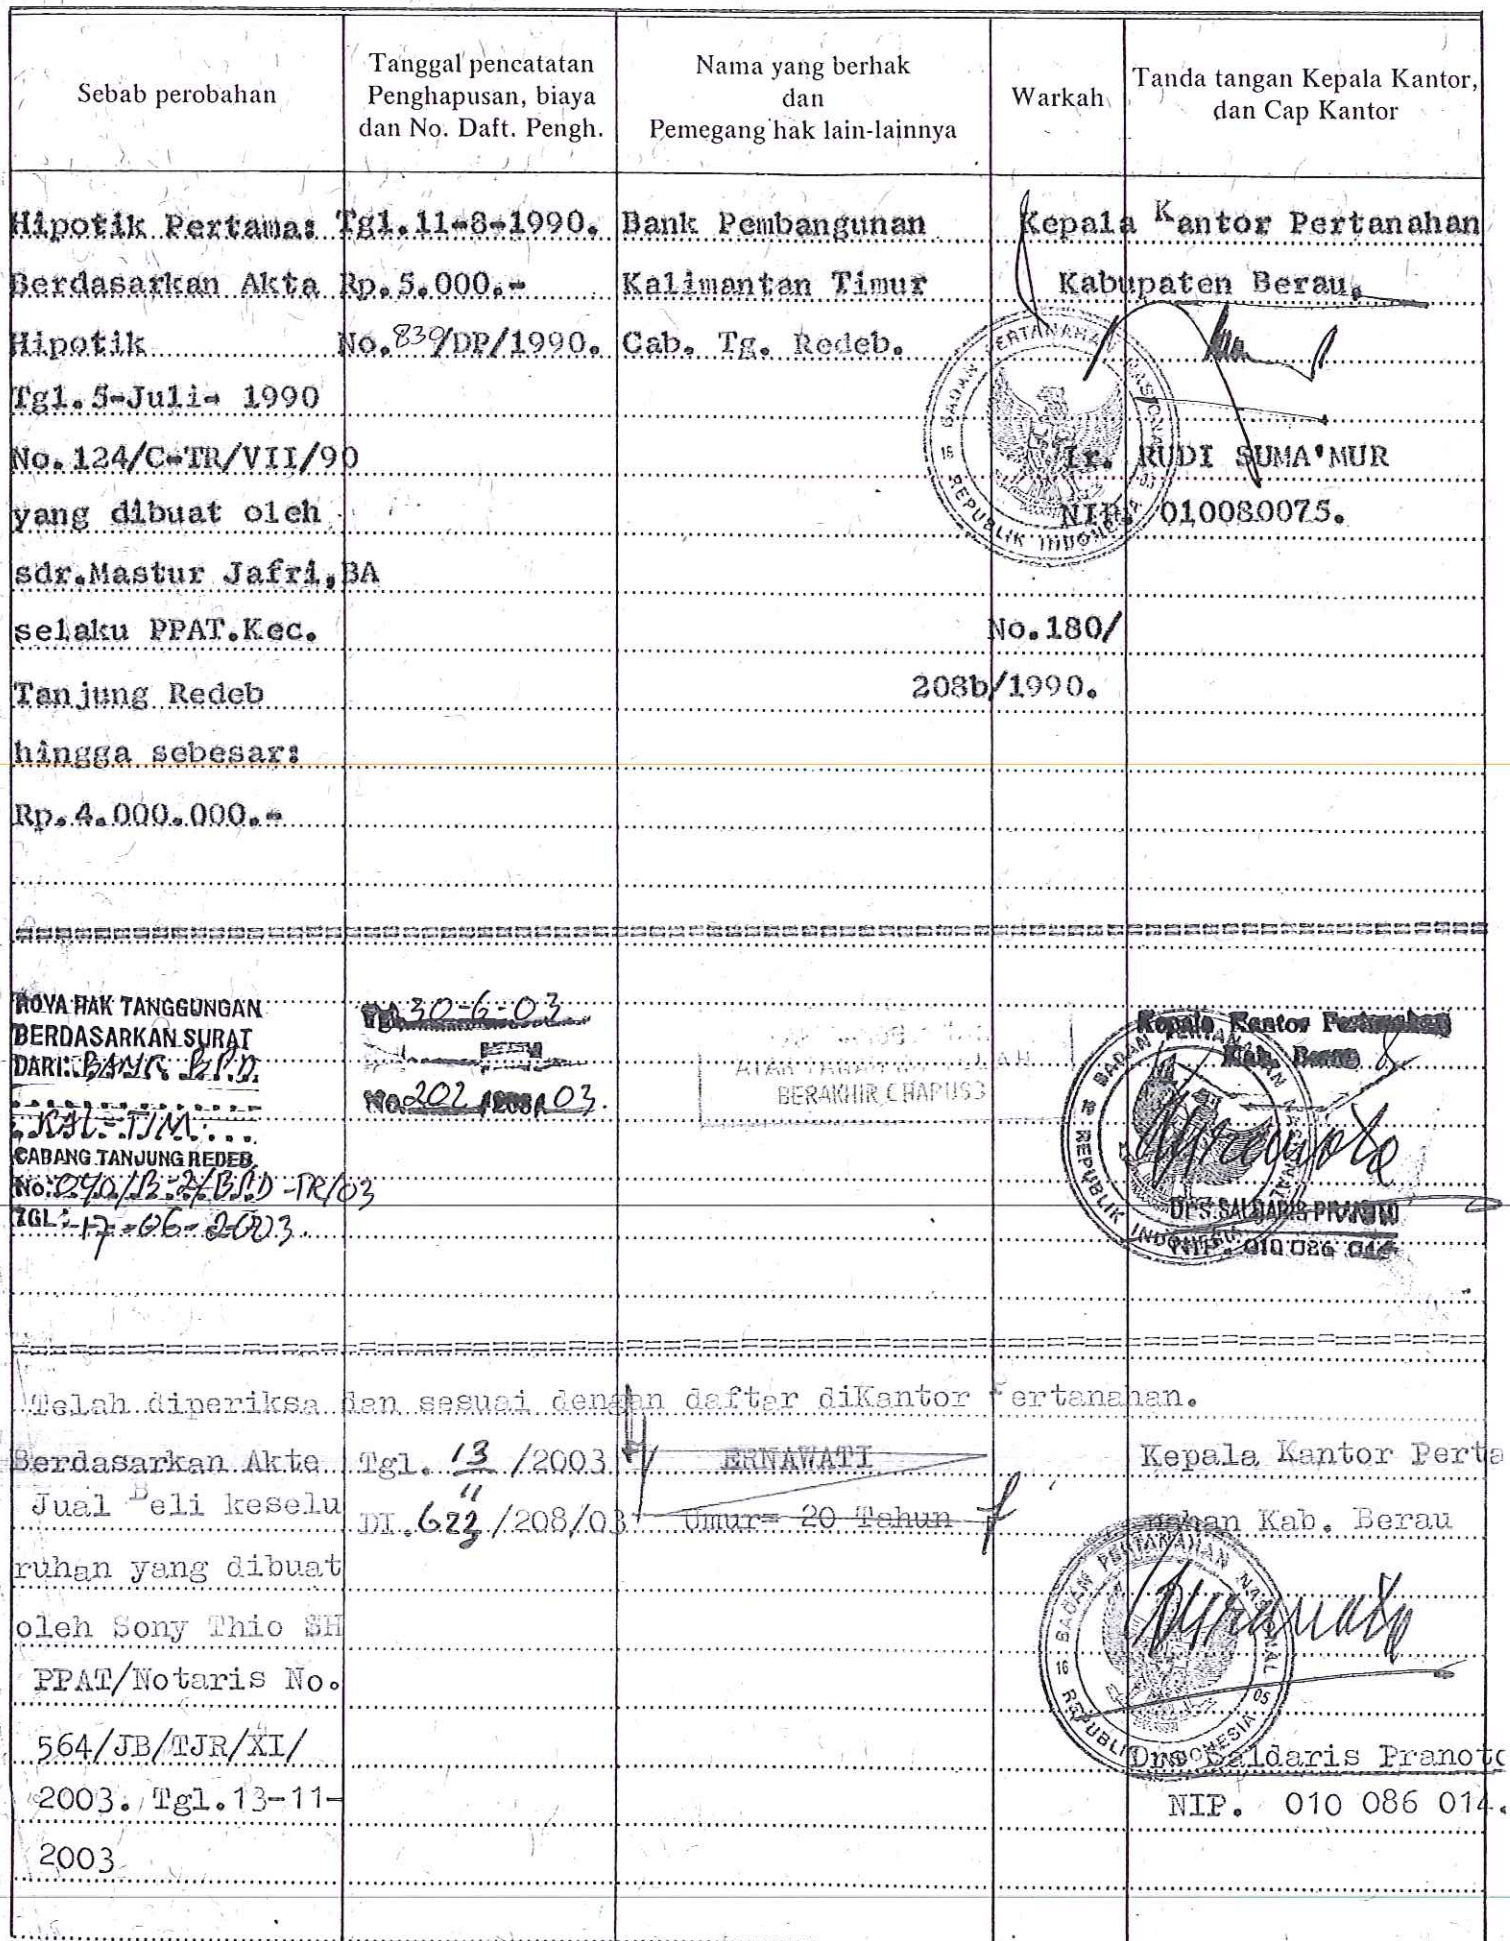 Sebab perobahan
Tanggal pencatatan
Penghapusan, biaya
dan No. Daft. Pengh.
Nama yang berhak
dan
Pemegang hak lain-lainnya
Warkah
Tanda tangan Kepala Kantor,
dan Cap Kantor
Hipotik Pertama:
Berdasarkan Akta
Hipotik
Tgl. 5-Juli- 1990
No. 124/C-TR/VII/90
yang dibuat oleh
sdr.Mastur Jafri,BA
selaku PPAT.Kec.
Tanjung Redeb
hingga sebesar:
Rp. 4.000.000.-
Tgl. 11-8-1990.
Rp. 5.000.-
No. 839/DP/1990.
Bank Pembangunan
Kalimantan Timur
Cab. Tg. Redeb.
No. 180/
208b/1990.
Kepala Kantor Pertanahan
Kabupaten Berau,
BADAN PERTANAHAN NASIONAL
16
REPUBLIK INDONESIA
Ir. RUDI SUMA'MUR
NIP. 010080075.
ROYA HAK TANGGUNGAN
BERDASARKAN SURAT
DARI: BANK BPD
KAL-TIM
CABANG TANJUNG REDEB
No: 040/B-2/BPD-TR/03
TGL: 17-06-2003.
30-6-03
No. 202 /208/ 03.
BERAKHIR (HAPUS)
Kepala Kantor Pertanahan
Kab. Berau
BADAN PERTANAHAN NASIONAL
REPUBLIK INDONESIA
Drs. SALDARIS PRANOTO
NIP. 010 086 014
Telah diperiksa dan sesuai dengan daftar diKantor Pertanahan.
Berdasarkan Akte
Jual Beli keselu
ruhan yang dibuat
oleh Sony Thio SH
PPAT/Notaris No.
564/JB/TJR/XI/
2003. Tgl.13-11-
2003
Tgl. 13/11 /2003
DI. 622/208/03
ERNAWATI
Umur= 20 Tahun
Kepala Kantor Perta
nahan Kab. Berau
BADAN PERTANAHAN NASIONAL
16 05
REPUBLIK INDONESIA
Drs Saldaris Pranoto
NIP. 010 086 014.